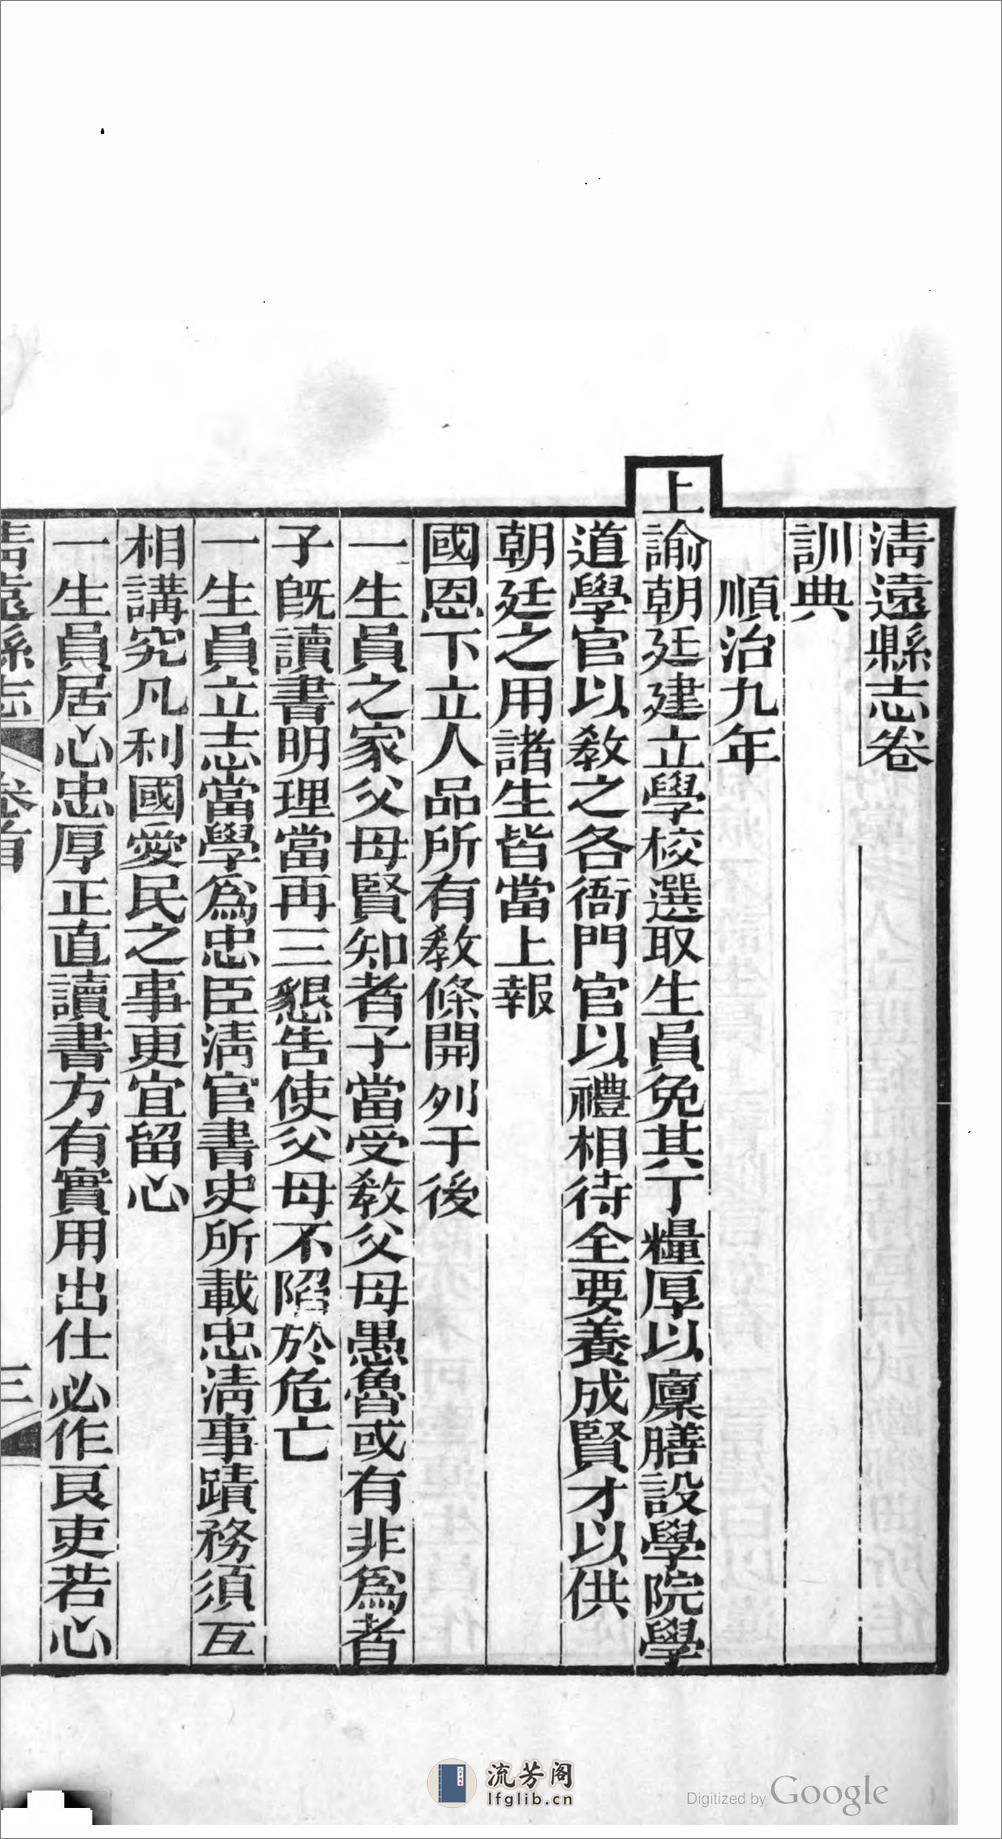 淸遠縣志卷
訓典
順治九年
上諭朝廷建立學校選取生員免其丁糧厚以廩膳設學院學
道學官以敎之各衙門官以禮相待全要養成賢才以供
朝廷之用諸生皆當上報
國恩下立人品所有敎條開列于後
一生員之家父母賢知者子當受敎父母愚魯或有非爲者
子旣讀書明理當再三懇告使父母不陷於危亡
一生員立志當學爲忠臣淸官書史所載忠淸事蹟務須互
相講究凡利國愛民之事更宜留心
一生員居心忠厚正直讀書方有實用出仕必作良吏若心
淸遠縣志 卷首 三
流芳阁
lfglib.cn
Digitized by Google